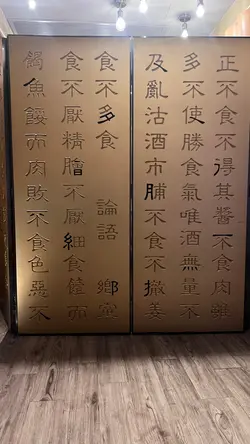 正不食不得其醬不食肉雖
多不使勝食氣唯酒無量不
及亂沽酒市脯不食不撤姜
食不多食 論語 鄉黨
食不厭精膾不厭細食饐而
餲魚餒而肉敗不食色惡不